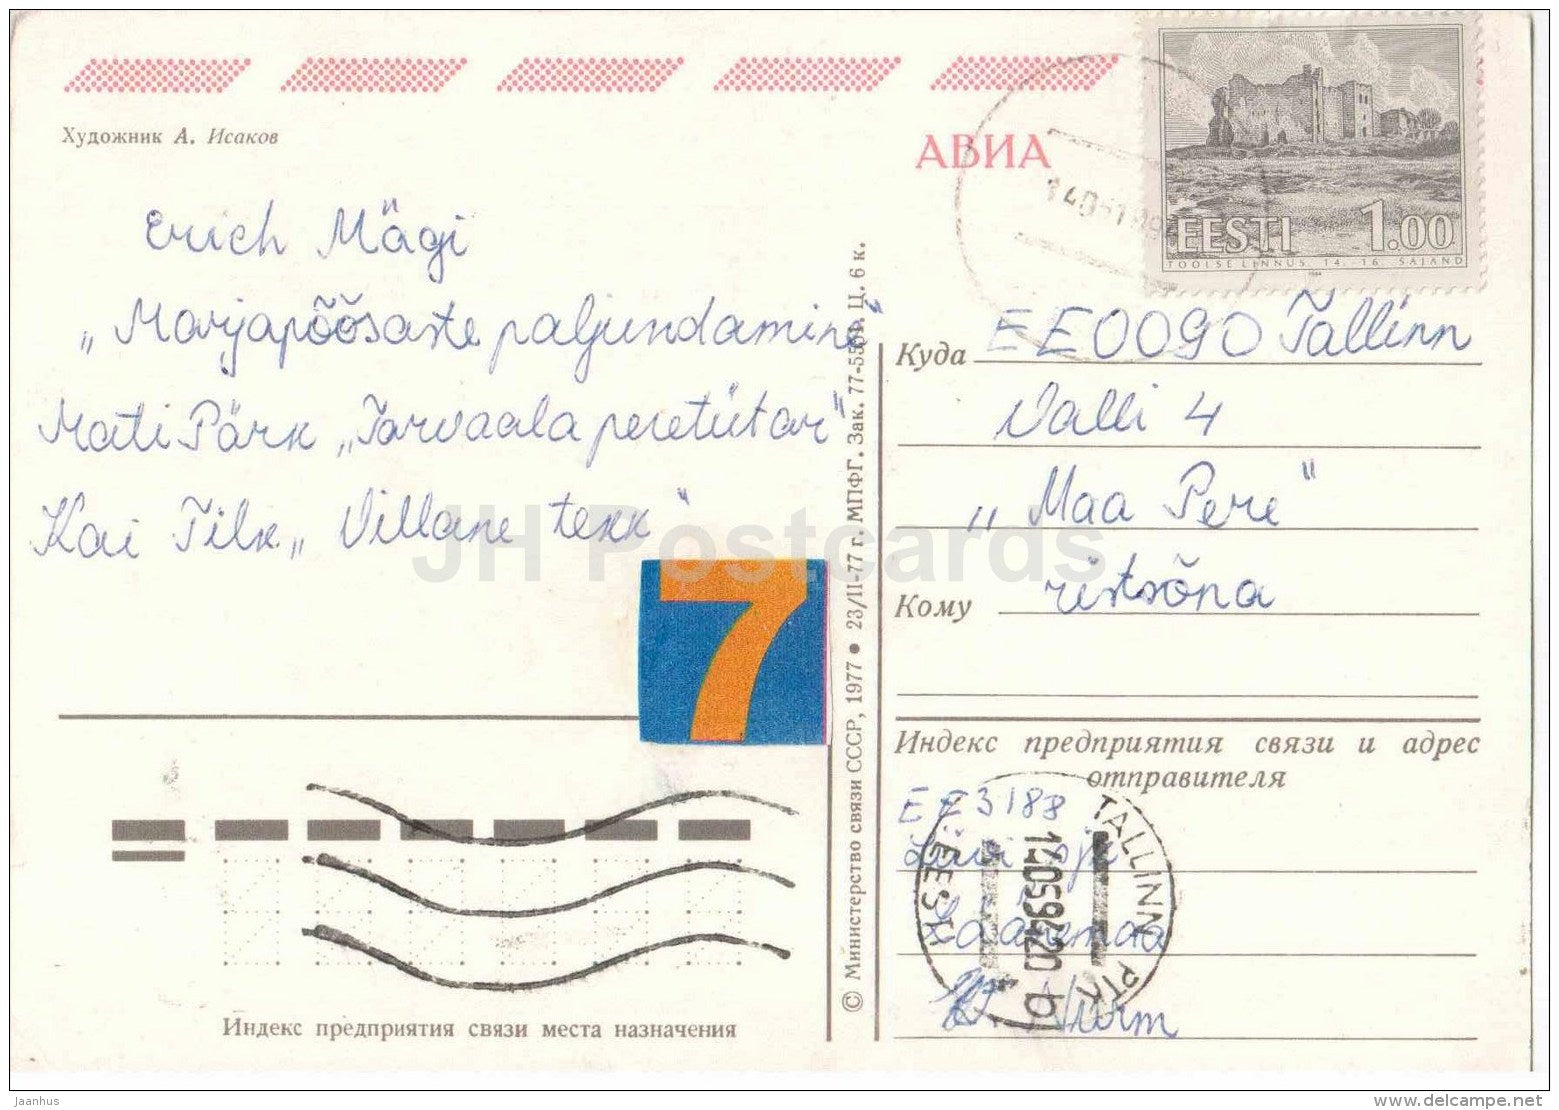 Художник А. Исаков
АВИА
EESTI 1.00
TOOLSE LINNUS. 14. 16. SAJAND
1994
Erich Mägi
„Marjapõõsaste paljundamine"
Mati Pärk „Tarvaala peretütar"
Kai Tilk „Villane tekk"
7
© Министерство связи СССР, 1977 • 23/II-77 г. МПФГ. Зак. 77-5551. Ц. 6 к.
Куда EE0090 Tallinn
Valli 4
„Maa Pere"
Кому ristsõna
Индекс предприятия связи и адрес
отправителя
EE3188
Läänemaa
Nurm
TALLINN PTK
140594-20
EESTI b
Индекс предприятия связи места назначения
JH Postcards
Jaanhus
delcampe.net